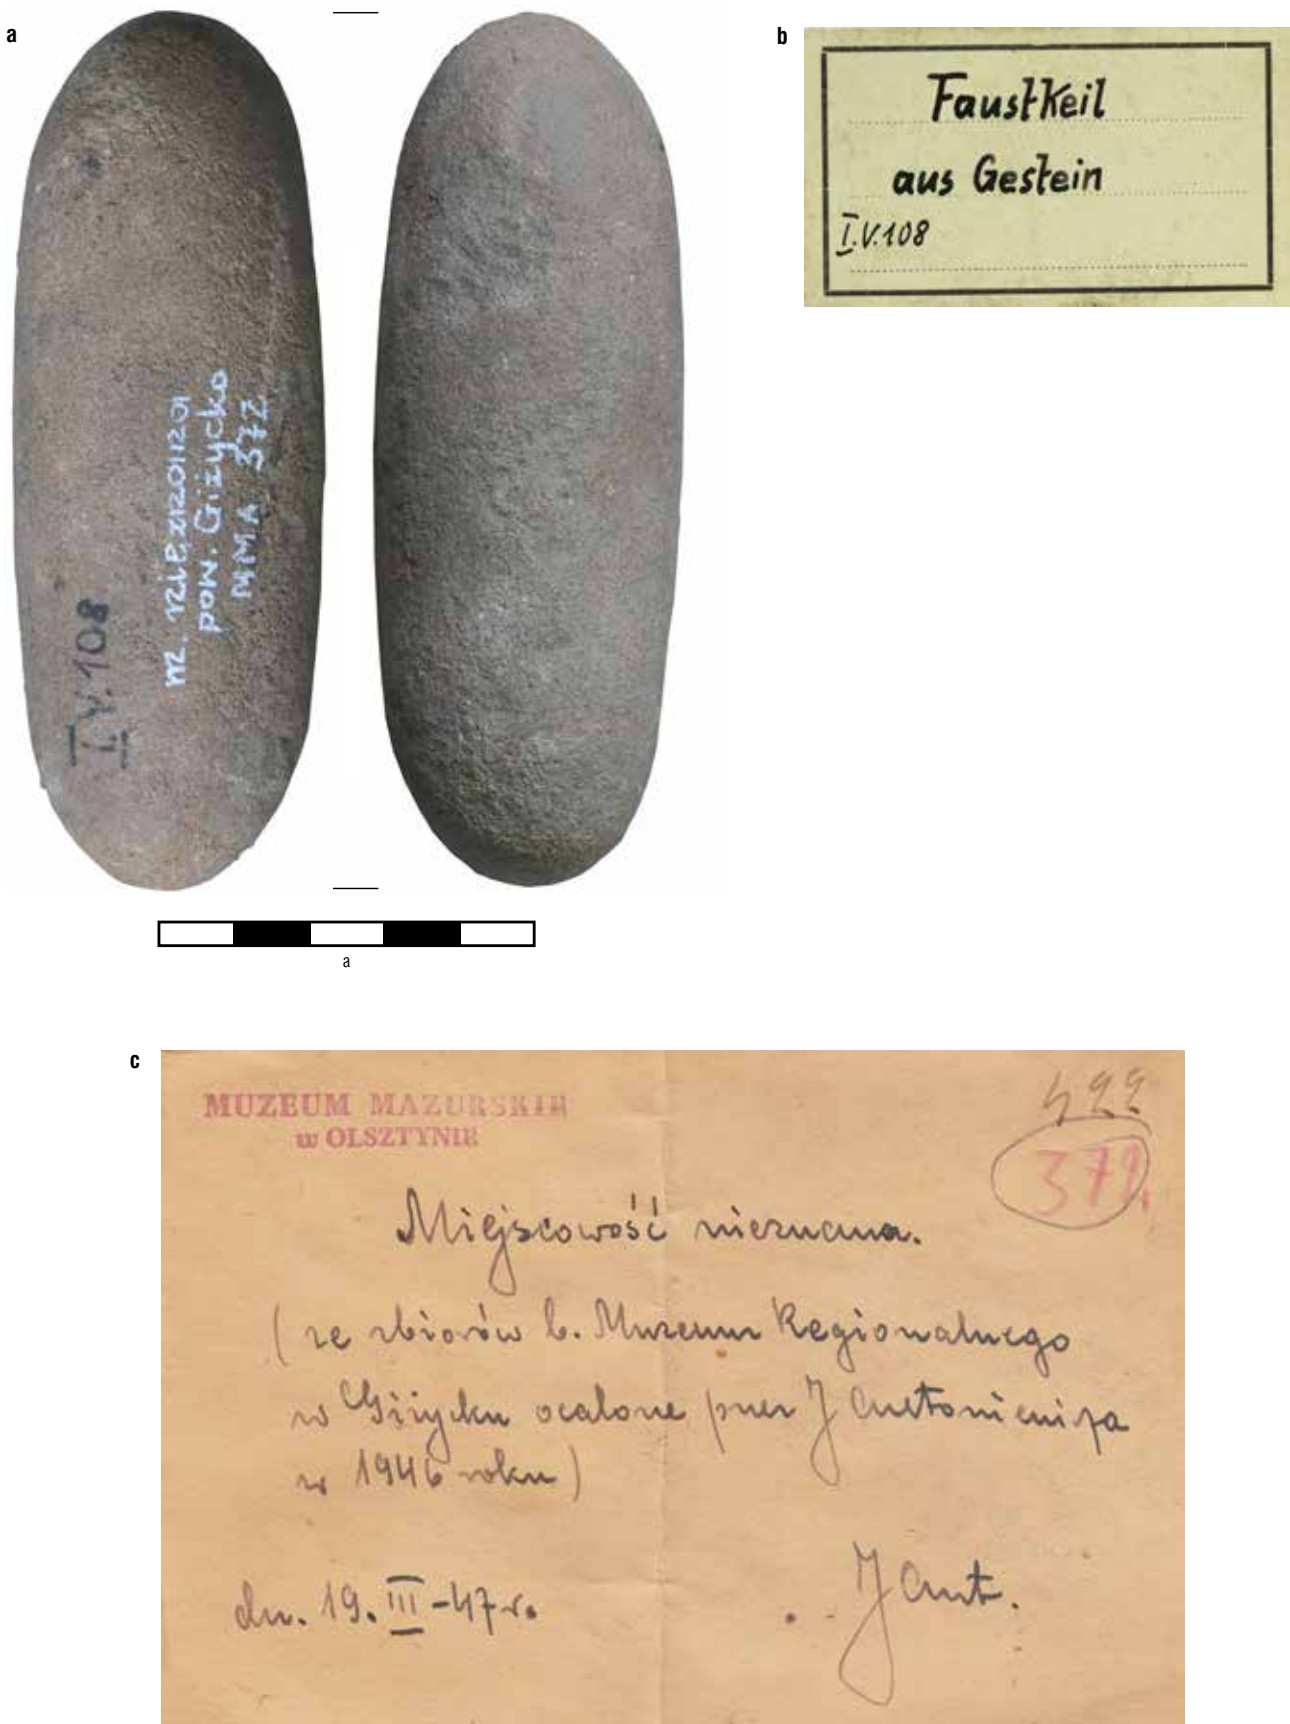 a
m. nieznana
pow. Giżycko
MMA 372
I.V.108
a
b
Faustkeil
aus Gestein
I.V.108
c
MUZEUM MAZURSKIE
w OLSZTYNIE
499
Miejscowość nieznana.
(ze zbiorów b. Muzeum Regionalnego
w Giżycku ocalone przez J Antoniewicza
w 1946 roku)
dn. 19. III-47 r.
J Ant.